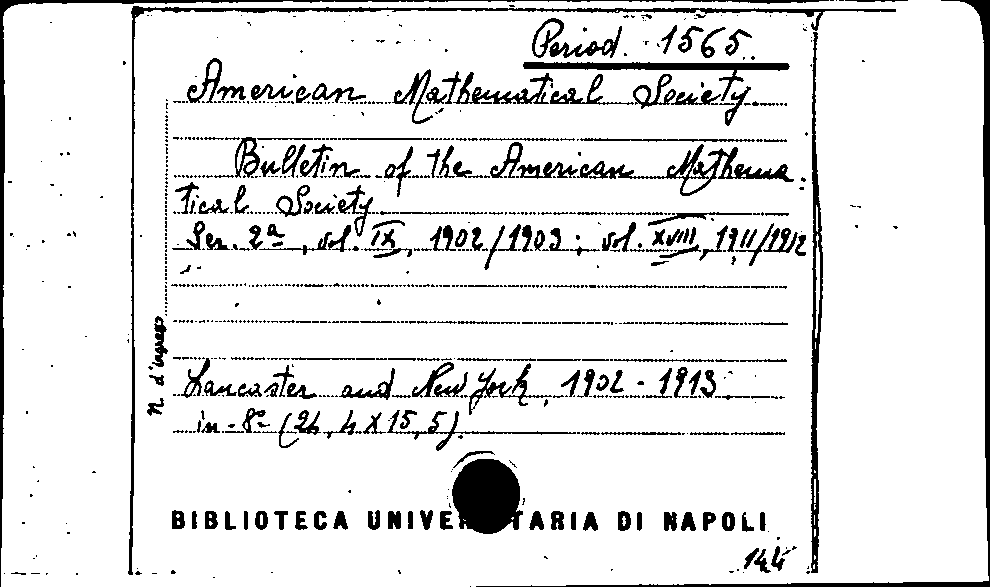 Period. 1565.
American Mathematical Society.
Bulletin of the American Mathema-
tical Society.
Ser. 2ª, vol. IX, 1902/1903; vol. XVIII, 1911/1912
Lancaster and New York, 1902-1913.
in-8° (24,4 X 15,5).
N. d'ingresso
BIBLIOTECA UNIVERSITARIA DI NAPOLI
144